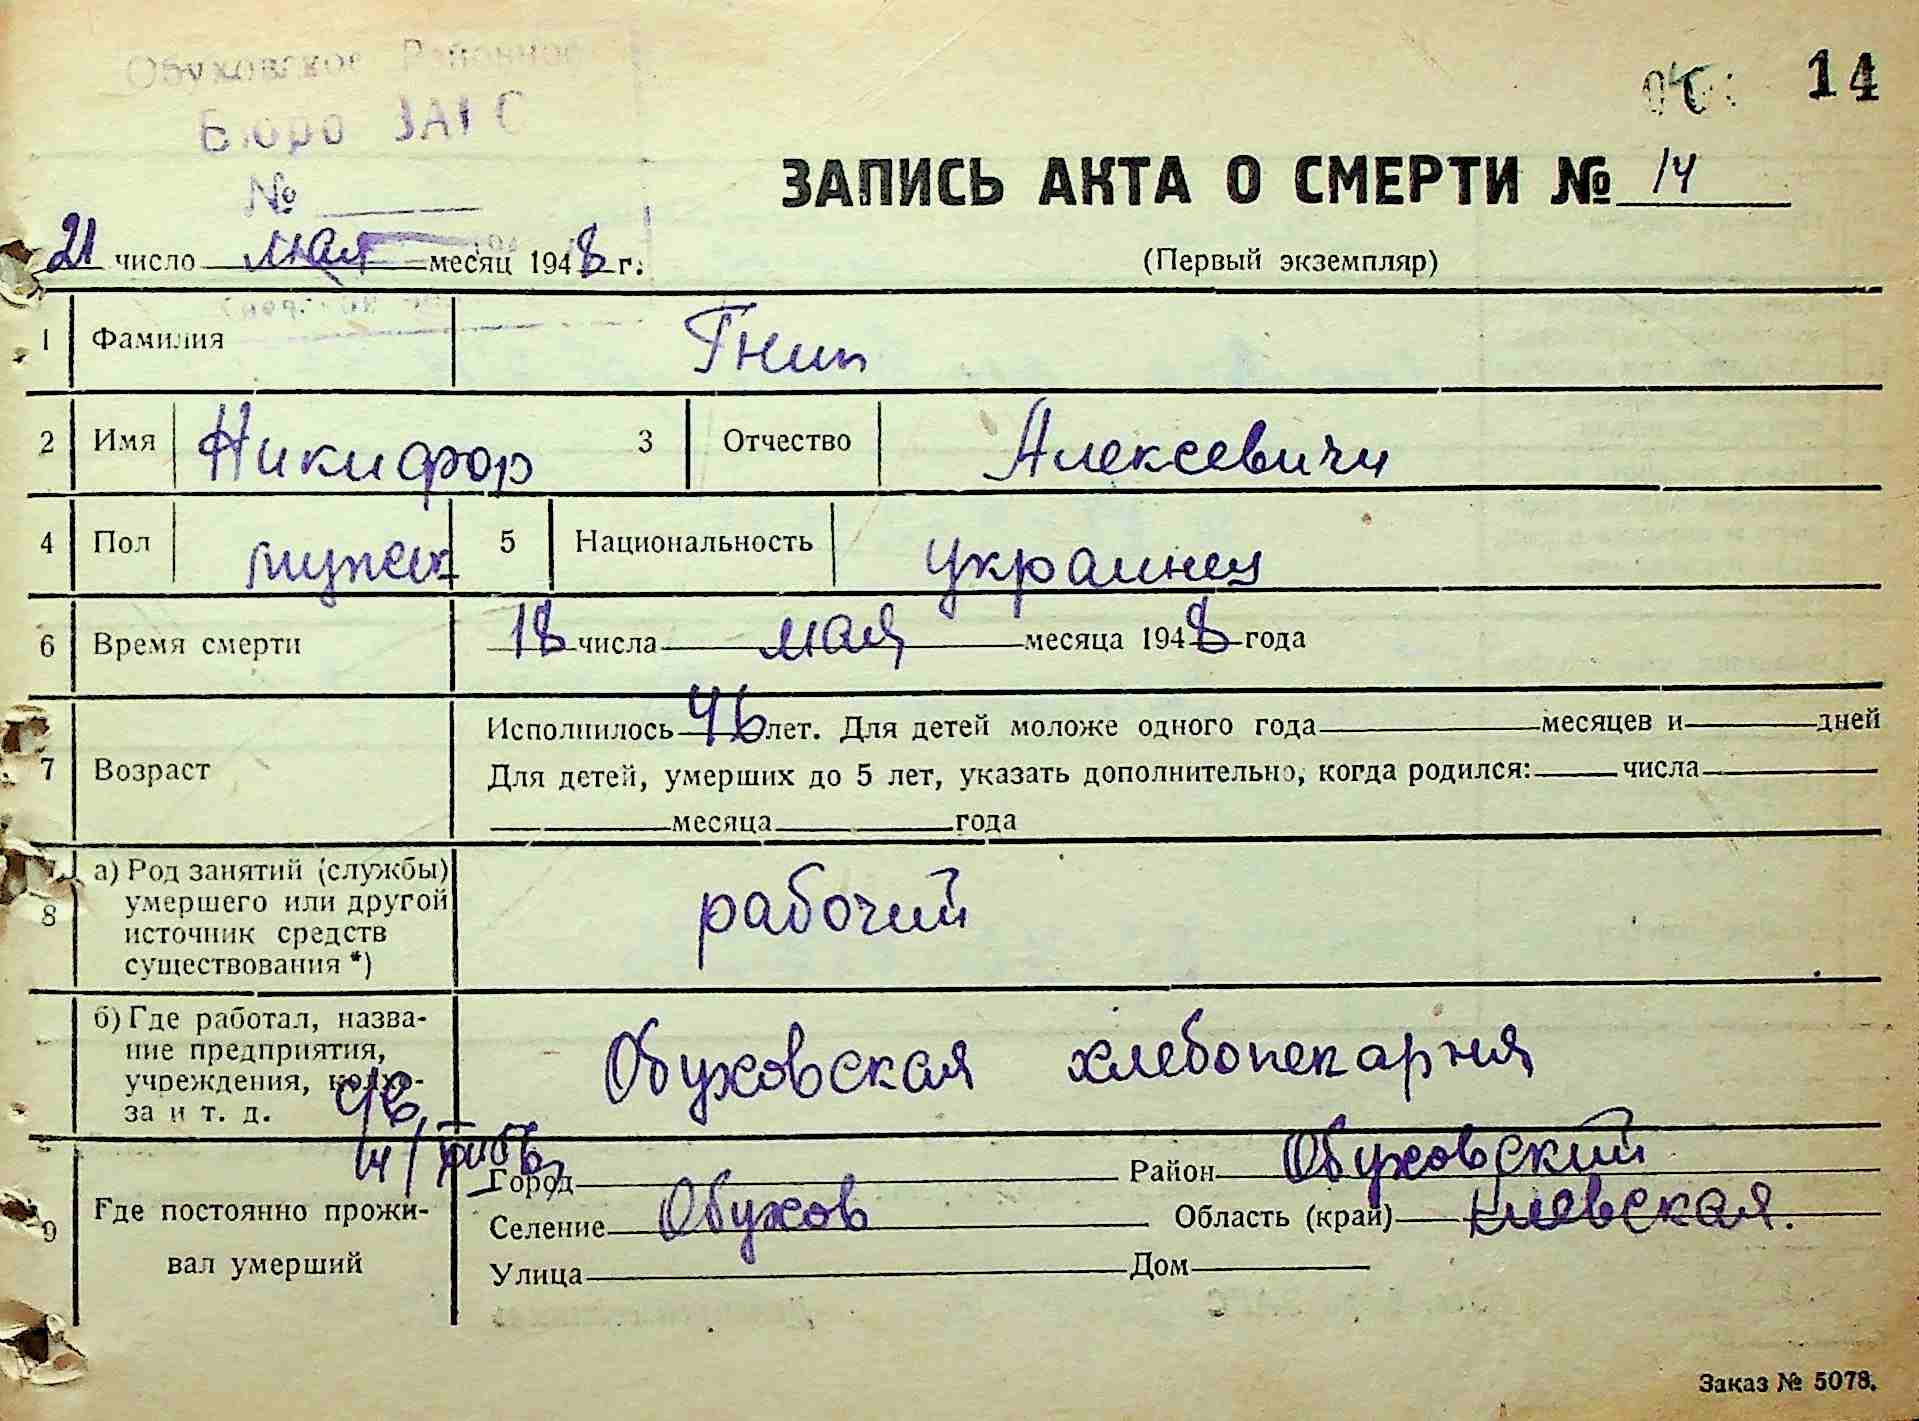 Обуховское Районное
Бюро ЗАГС
№
14
ЗАПИСЬ АКТА О СМЕРТИ № 14
21 число мая месяц 1948 г.
(Первый экземпляр)
1 Фамилия Гнип
2 Имя Никифор 3 Отчество Алексеевич
4 Пол мужск 5 Национальность украинец
6 Время смерти 18 числа мая месяца 1948 года
7 Возраст
Исполнилось 46 лет. Для детей моложе одного года месяцев и дней
Для детей, умерших до 5 лет, указать дополнительно, когда родился: числа
месяца года
8 а) Род занятий (службы)
умершего или другой
источник средств
существования *)
рабочий
б) Где работал, назва-
ние предприятия,
учреждения, колхо-
за и т. д.
Обуховская хлебопекарня
9 Где постоянно прожи-
вал умерший
Город Район Обуховский
Селение Обухов Область (край) Киевская.
Улица Дом
Заказ № 5078.